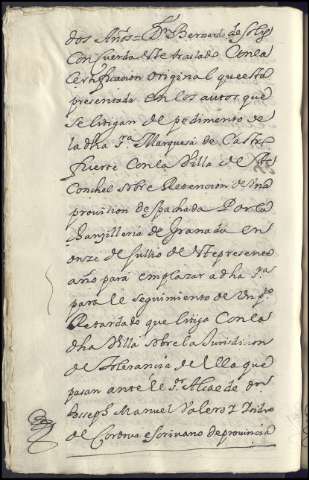 dos Años = Dn Bernardo de Solis
Concuerda este traslado Con la
Certificacion original que esta
presentada en los autos que
se litigan de pedimento de
la dha Sra Marquesa de Castro
fuerte Con la Villa de
Conchel sobre Retencion de Una
provision despachada Por la
chanzilleria de Granada en
onze de Jullio deste presente
año para emplazar a dha Sra
para el seguimiento de Un Pto
Retardado que litiga Con la
dha Villa sobre la Jurisdicion
de de ella que
pasan ante el Sr Alcalde Dn
Joseph Manuel Valero y Pedro
de Cordova escrivano de provincia